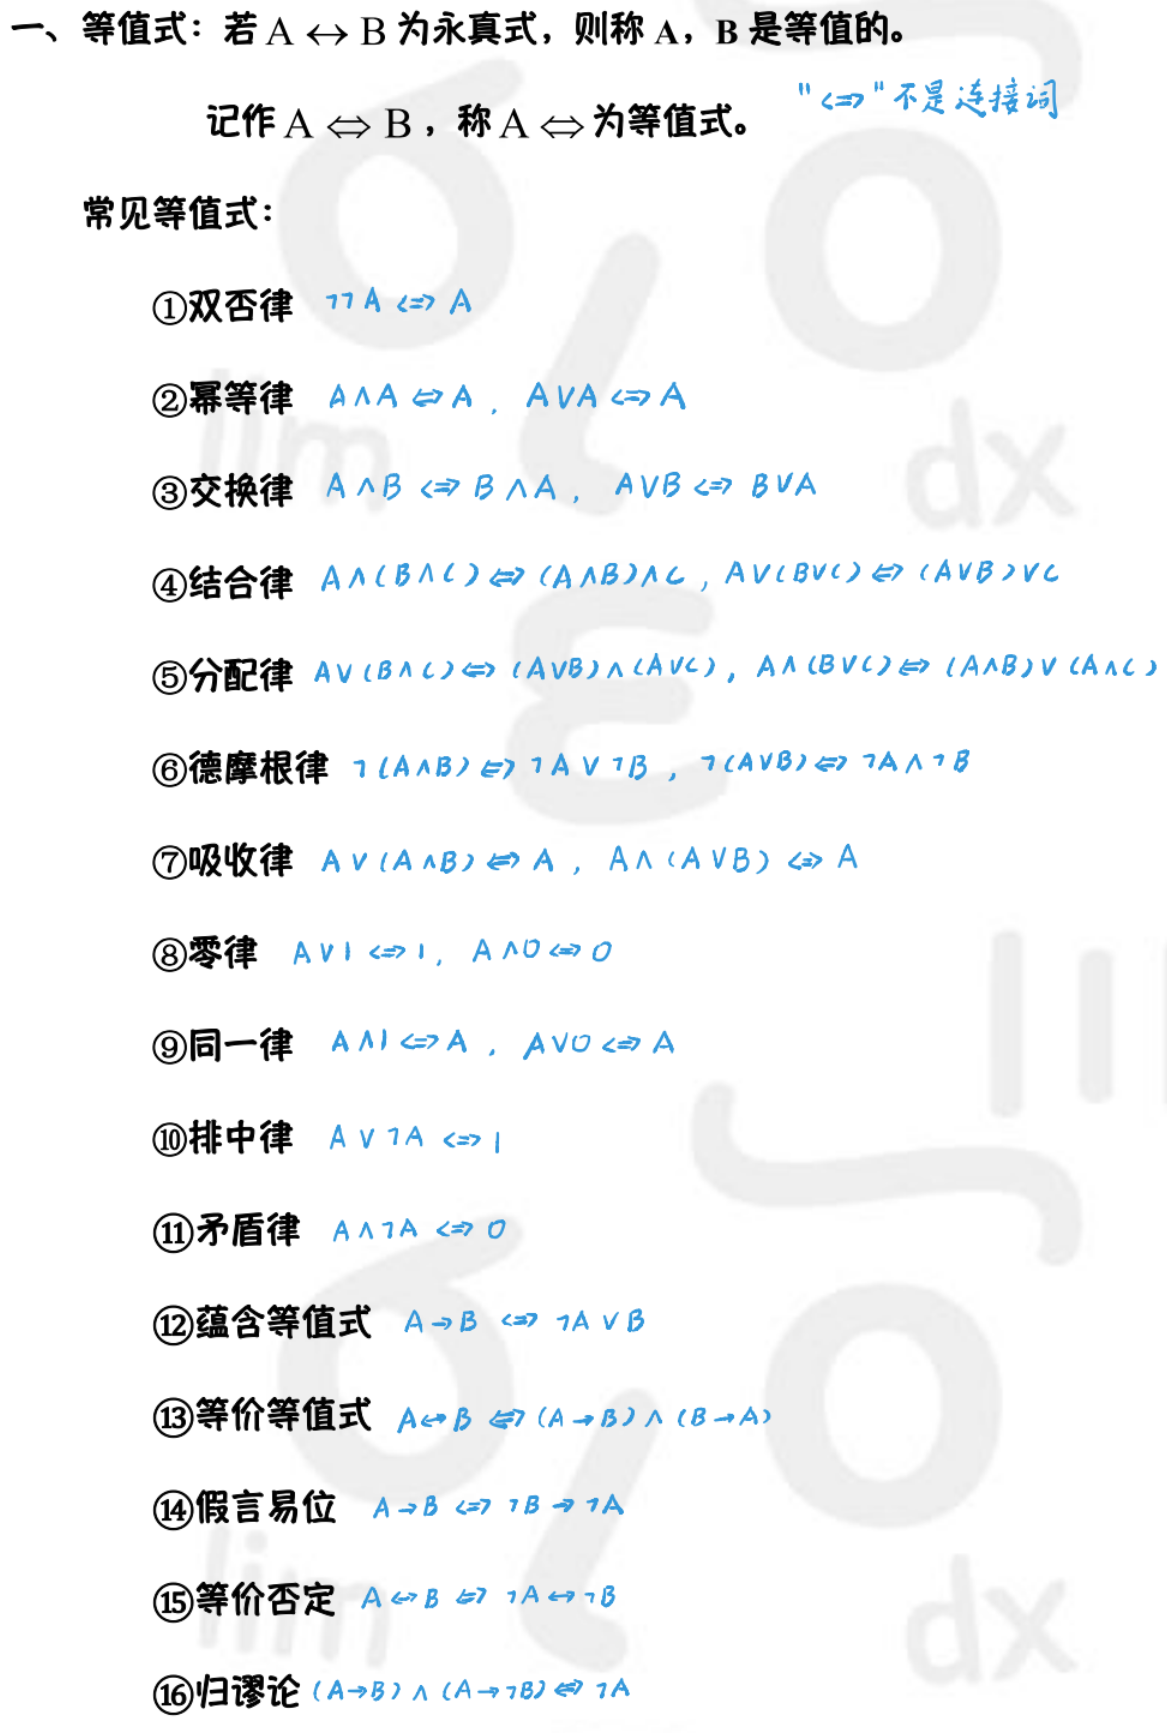 一、等值式：若 A ↔ B 为永真式，则称 A，B 是等值的。
记作 A ⇔ B，称 A ⇔ 为等值式。 "⇔"不是连接词
常见等值式：
①双否律 ¬¬A ⇔ A
②幂等律 A∧A ⇔ A，A∨A ⇔ A
③交换律 A∧B ⇔ B∧A，A∨B ⇔ B∨A
④结合律 A∧(B∧C) ⇔ (A∧B)∧C，A∨(B∨C) ⇔ (A∨B)∨C
⑤分配律 A∨(B∧C) ⇔ (A∨B)∧(A∨C)，A∧(B∨C) ⇔ (A∧B)∨(A∧C)
⑥德摩根律 ¬(A∧B) ⇔ ¬A∨¬B，¬(A∨B) ⇔ ¬A∧¬B
⑦吸收律 A∨(A∧B) ⇔ A，A∧(A∨B) ⇔ A
⑧零律 A∨1 ⇔ 1，A∧0 ⇔ 0
⑨同一律 A∧1 ⇔ A，A∨0 ⇔ A
⑩排中律 A∨¬A ⇔ 1
⑪矛盾律 A∧¬A ⇔ 0
⑫蕴含等值式 A→B ⇔ ¬A∨B
⑬等价等值式 A↔B ⇔ (A→B)∧(B→A)
⑭假言易位 A→B ⇔ ¬B→¬A
⑮等价否定 A↔B ⇔ ¬A↔¬B
⑯归谬论 (A→B)∧(A→¬B) ⇔ ¬A